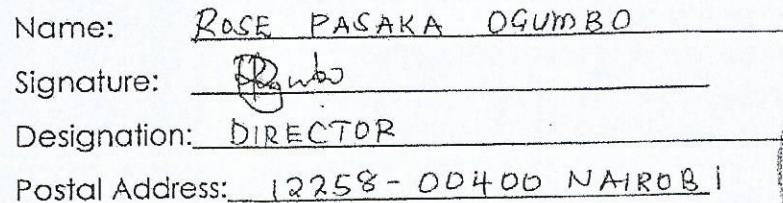 Name: ROSE PASAKA OGUMBO
Signature:
Designation: DIRECTOR
Postal Address: 12258-00400 NAIROBI